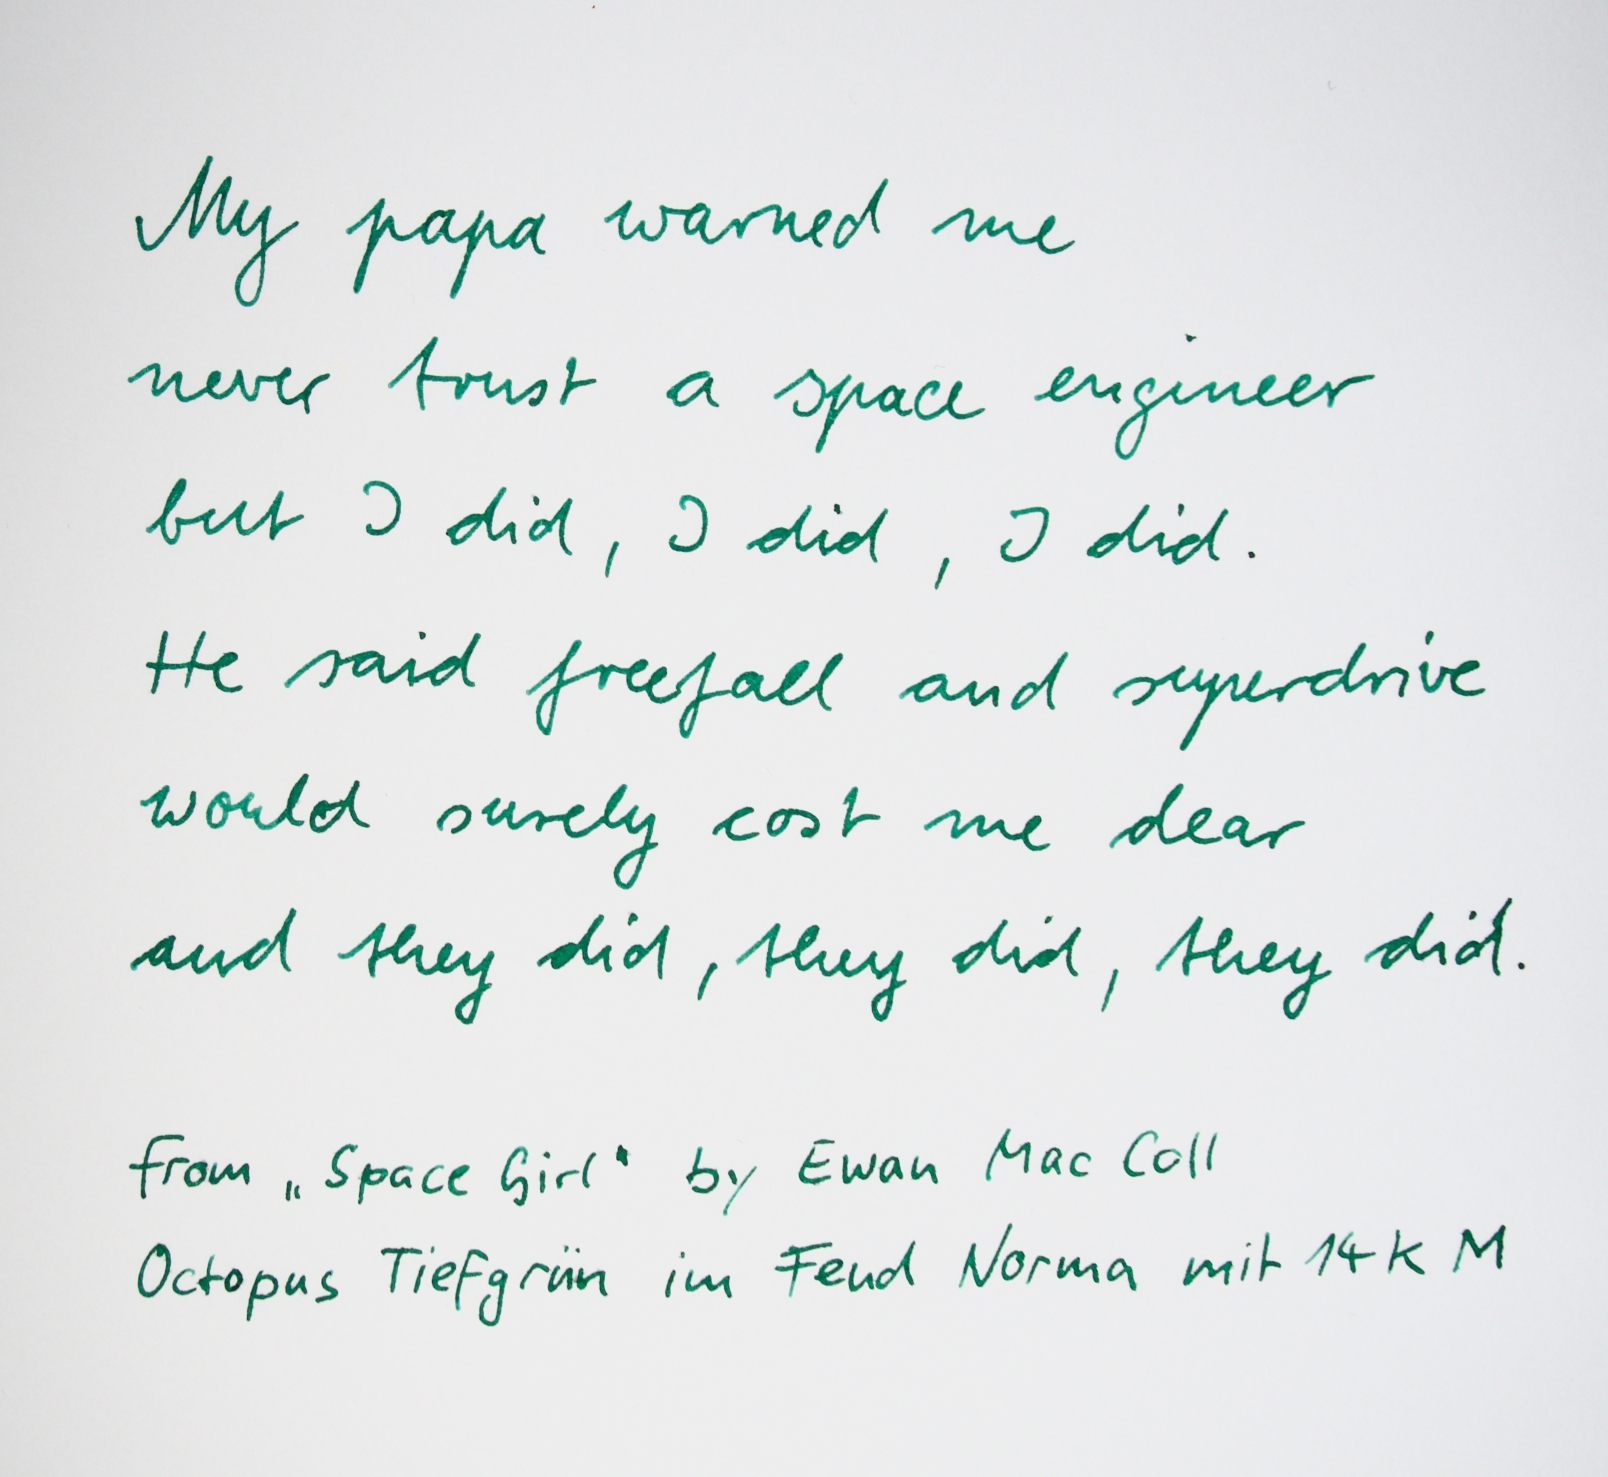 My papa warned me
never trust a space engineer
but I did, I did, I did.
He said freefall and superdrive
would surely cost me dear
and they did, they did, they did.
from „Space Girl“ by Ewan Mac Coll
Octopus Tiefgrün im Fend Norma mit 14K M